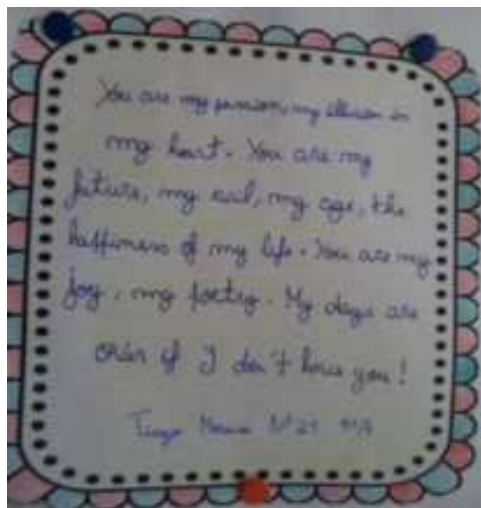 You are my passion, my illusion in
my heart. You are my
future, my soul, my age, the
happiness of my life. You are my
joy, my poetry. My days are
if I don't have you!
Tiago Nº 21